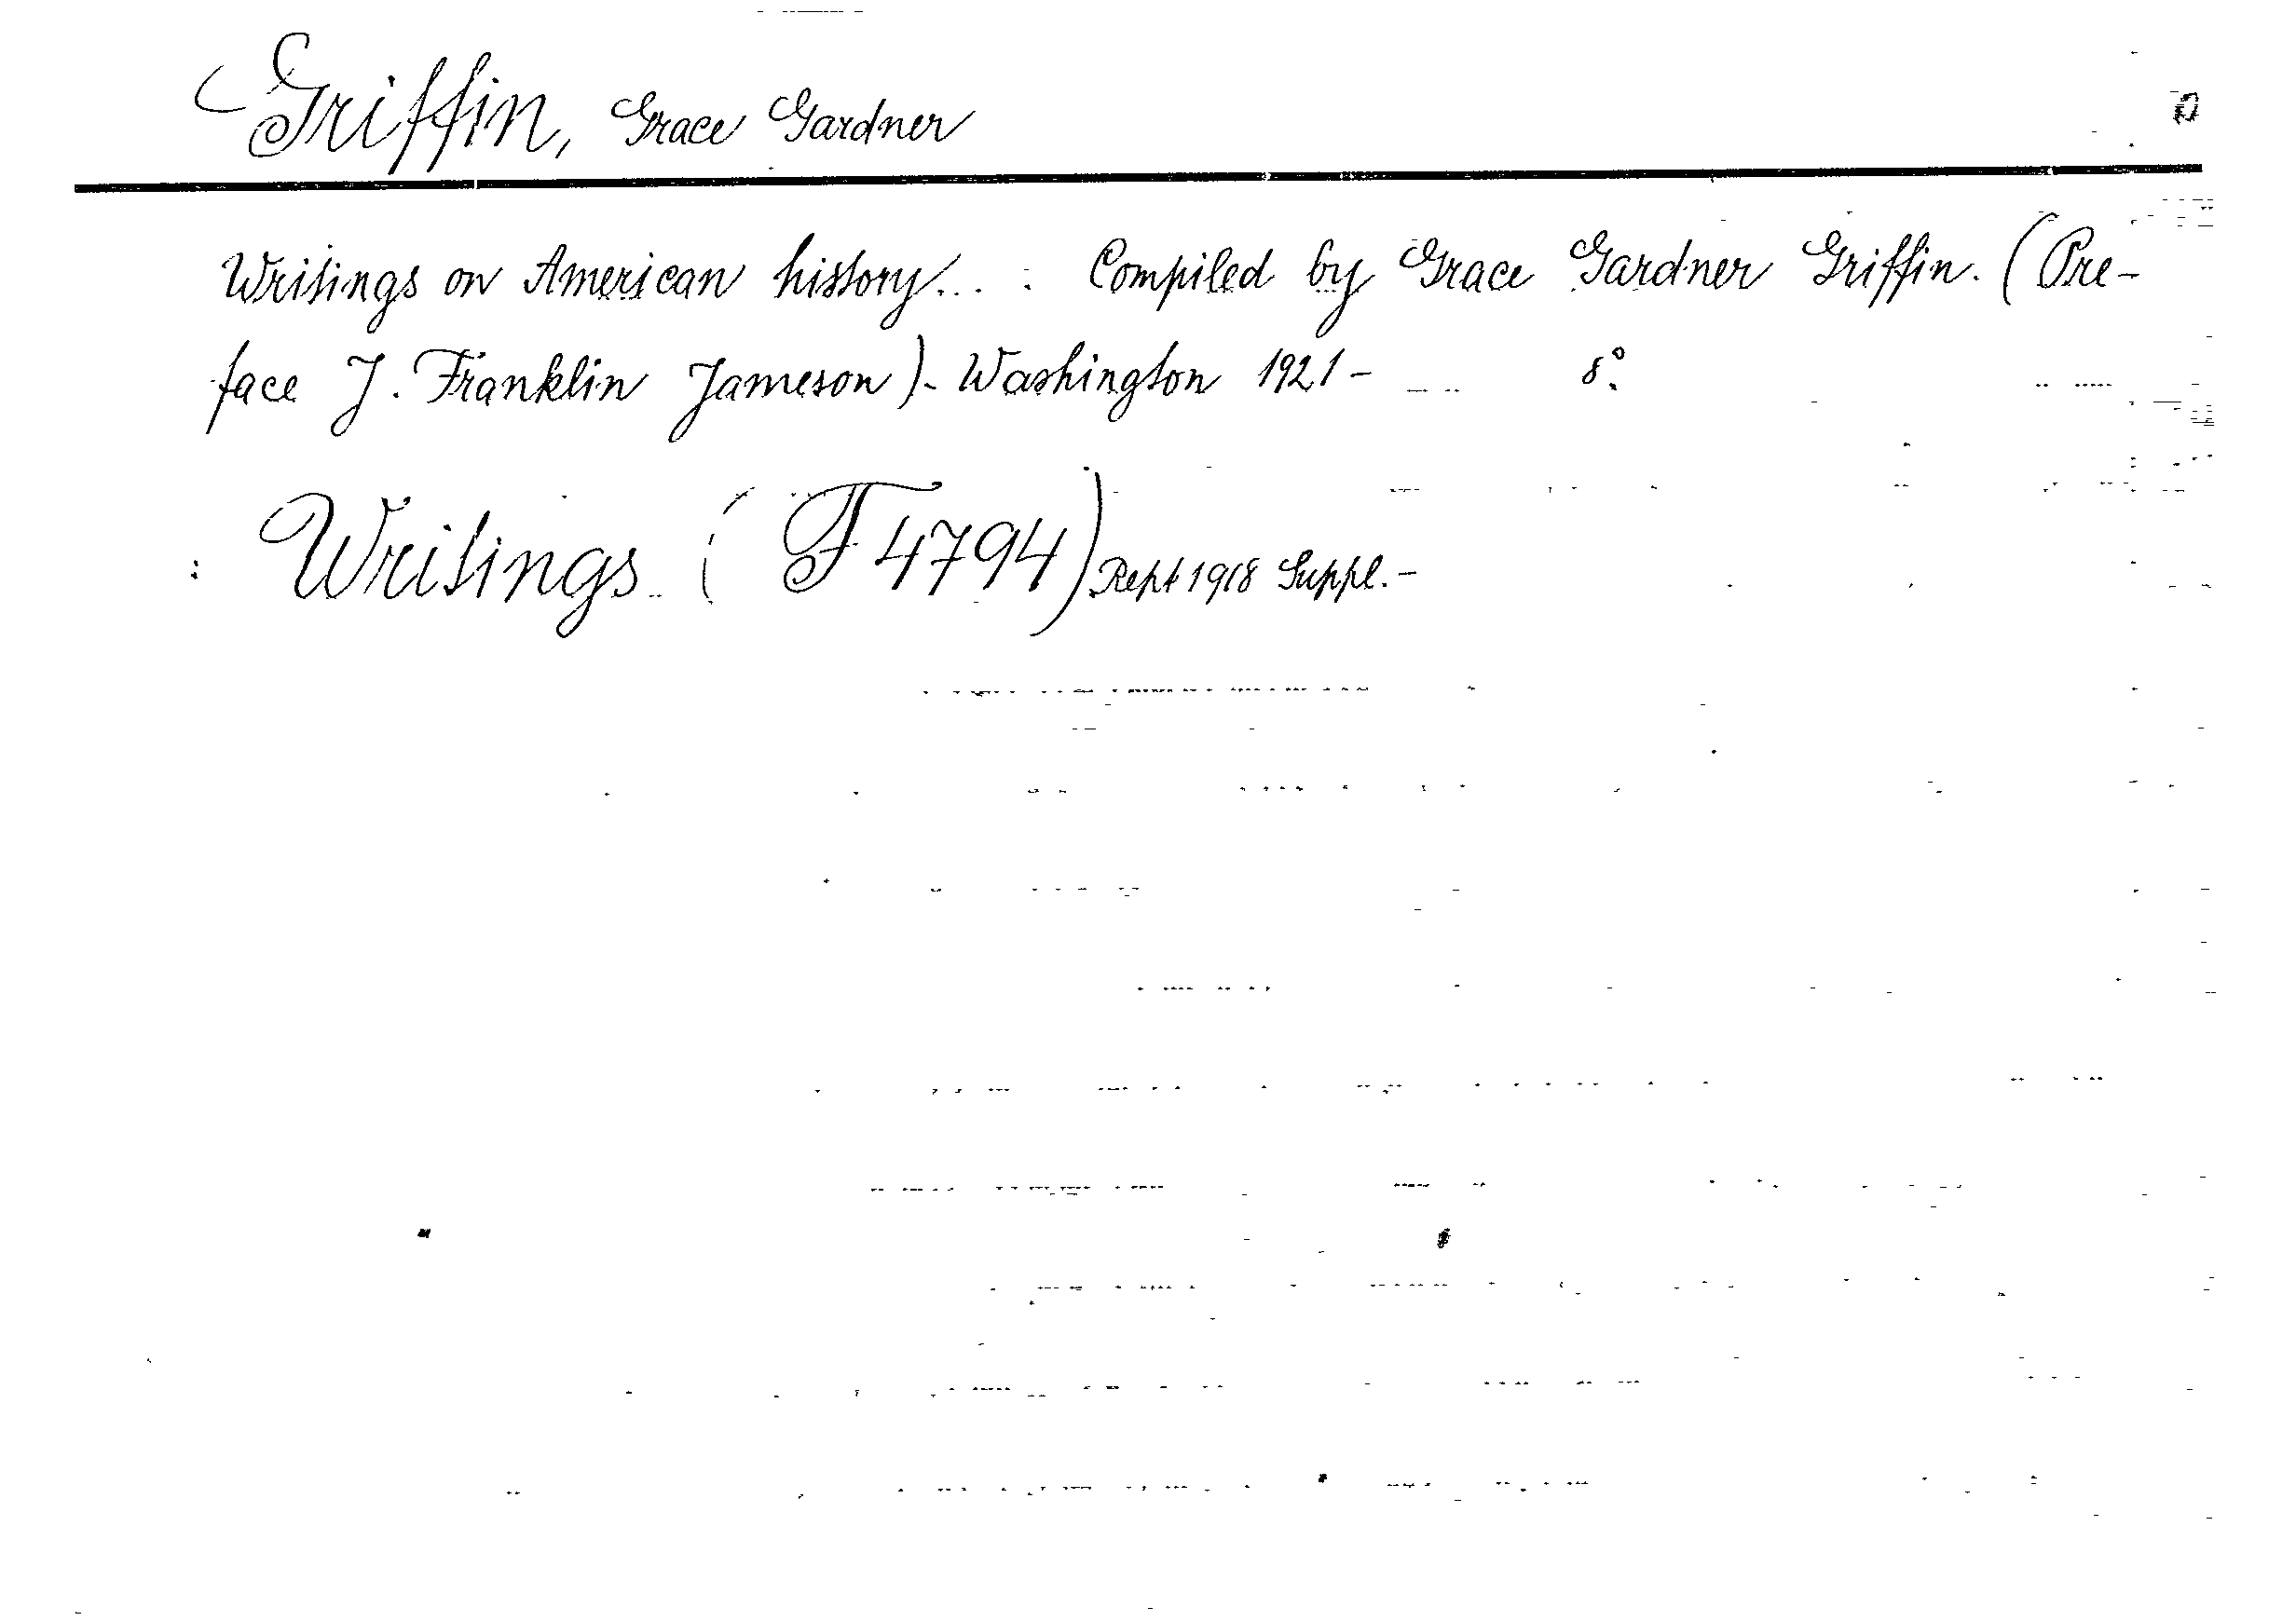 Griffin, Grace Gardner
Writings on American history... : Compiled by Grace Gardner Griffin. (Pre-
face J. Franklin Jameson).- Washington 1921- 8°.
: Writings (F 4794) Rept 1918 Suppl.-